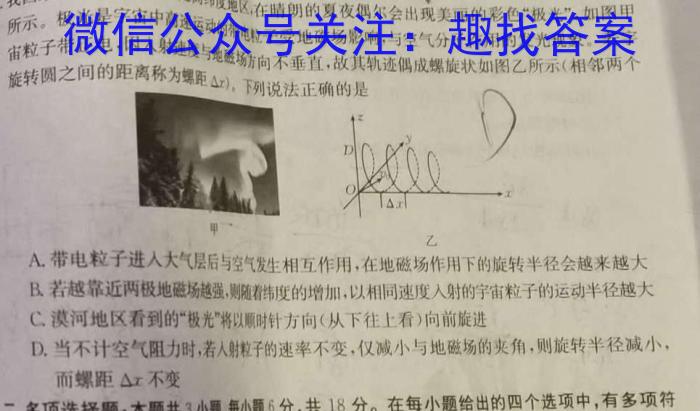 在晴朗的夏夜偶尔会出现美丽的彩色“极光”，如图甲
所示。极光是宇宙中高速运动的
微信公众号关注：趣找答案
宙粒子带 方向不垂直，故其轨迹偶成螺旋状如图乙所示(相邻两个
旋转圆之间的距离称为螺距Δx)。下列说法正确的是
D
z
y
D
O
Δx
x
甲
乙
A. 带电粒子进入大气层后与空气发生相互作用,在地磁场作用下的旋转半径会越来越大
B. 若越靠近两极地磁场越强,则随着纬度的增加,以相同速度入射的宇宙粒子的运动半径越大
C. 漠河地区看到的“极光”将以顺时针方向(从下往上看)向前旋进
D. 当不计空气阻力时,若入射粒子的速率不变,仅减小与地磁场的夹角,则旋转半径减小,
而螺距Δx不变
二、多项选择题:本题共3小题,每小题6分,共18分。在每小题给出的四个选项中,有多项符